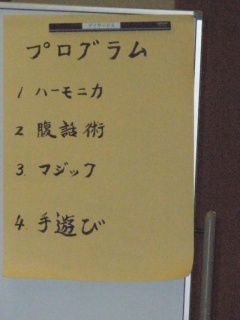 プログラム
1 ハーモニカ
2 腹話術
3. マジック
4 手遊び